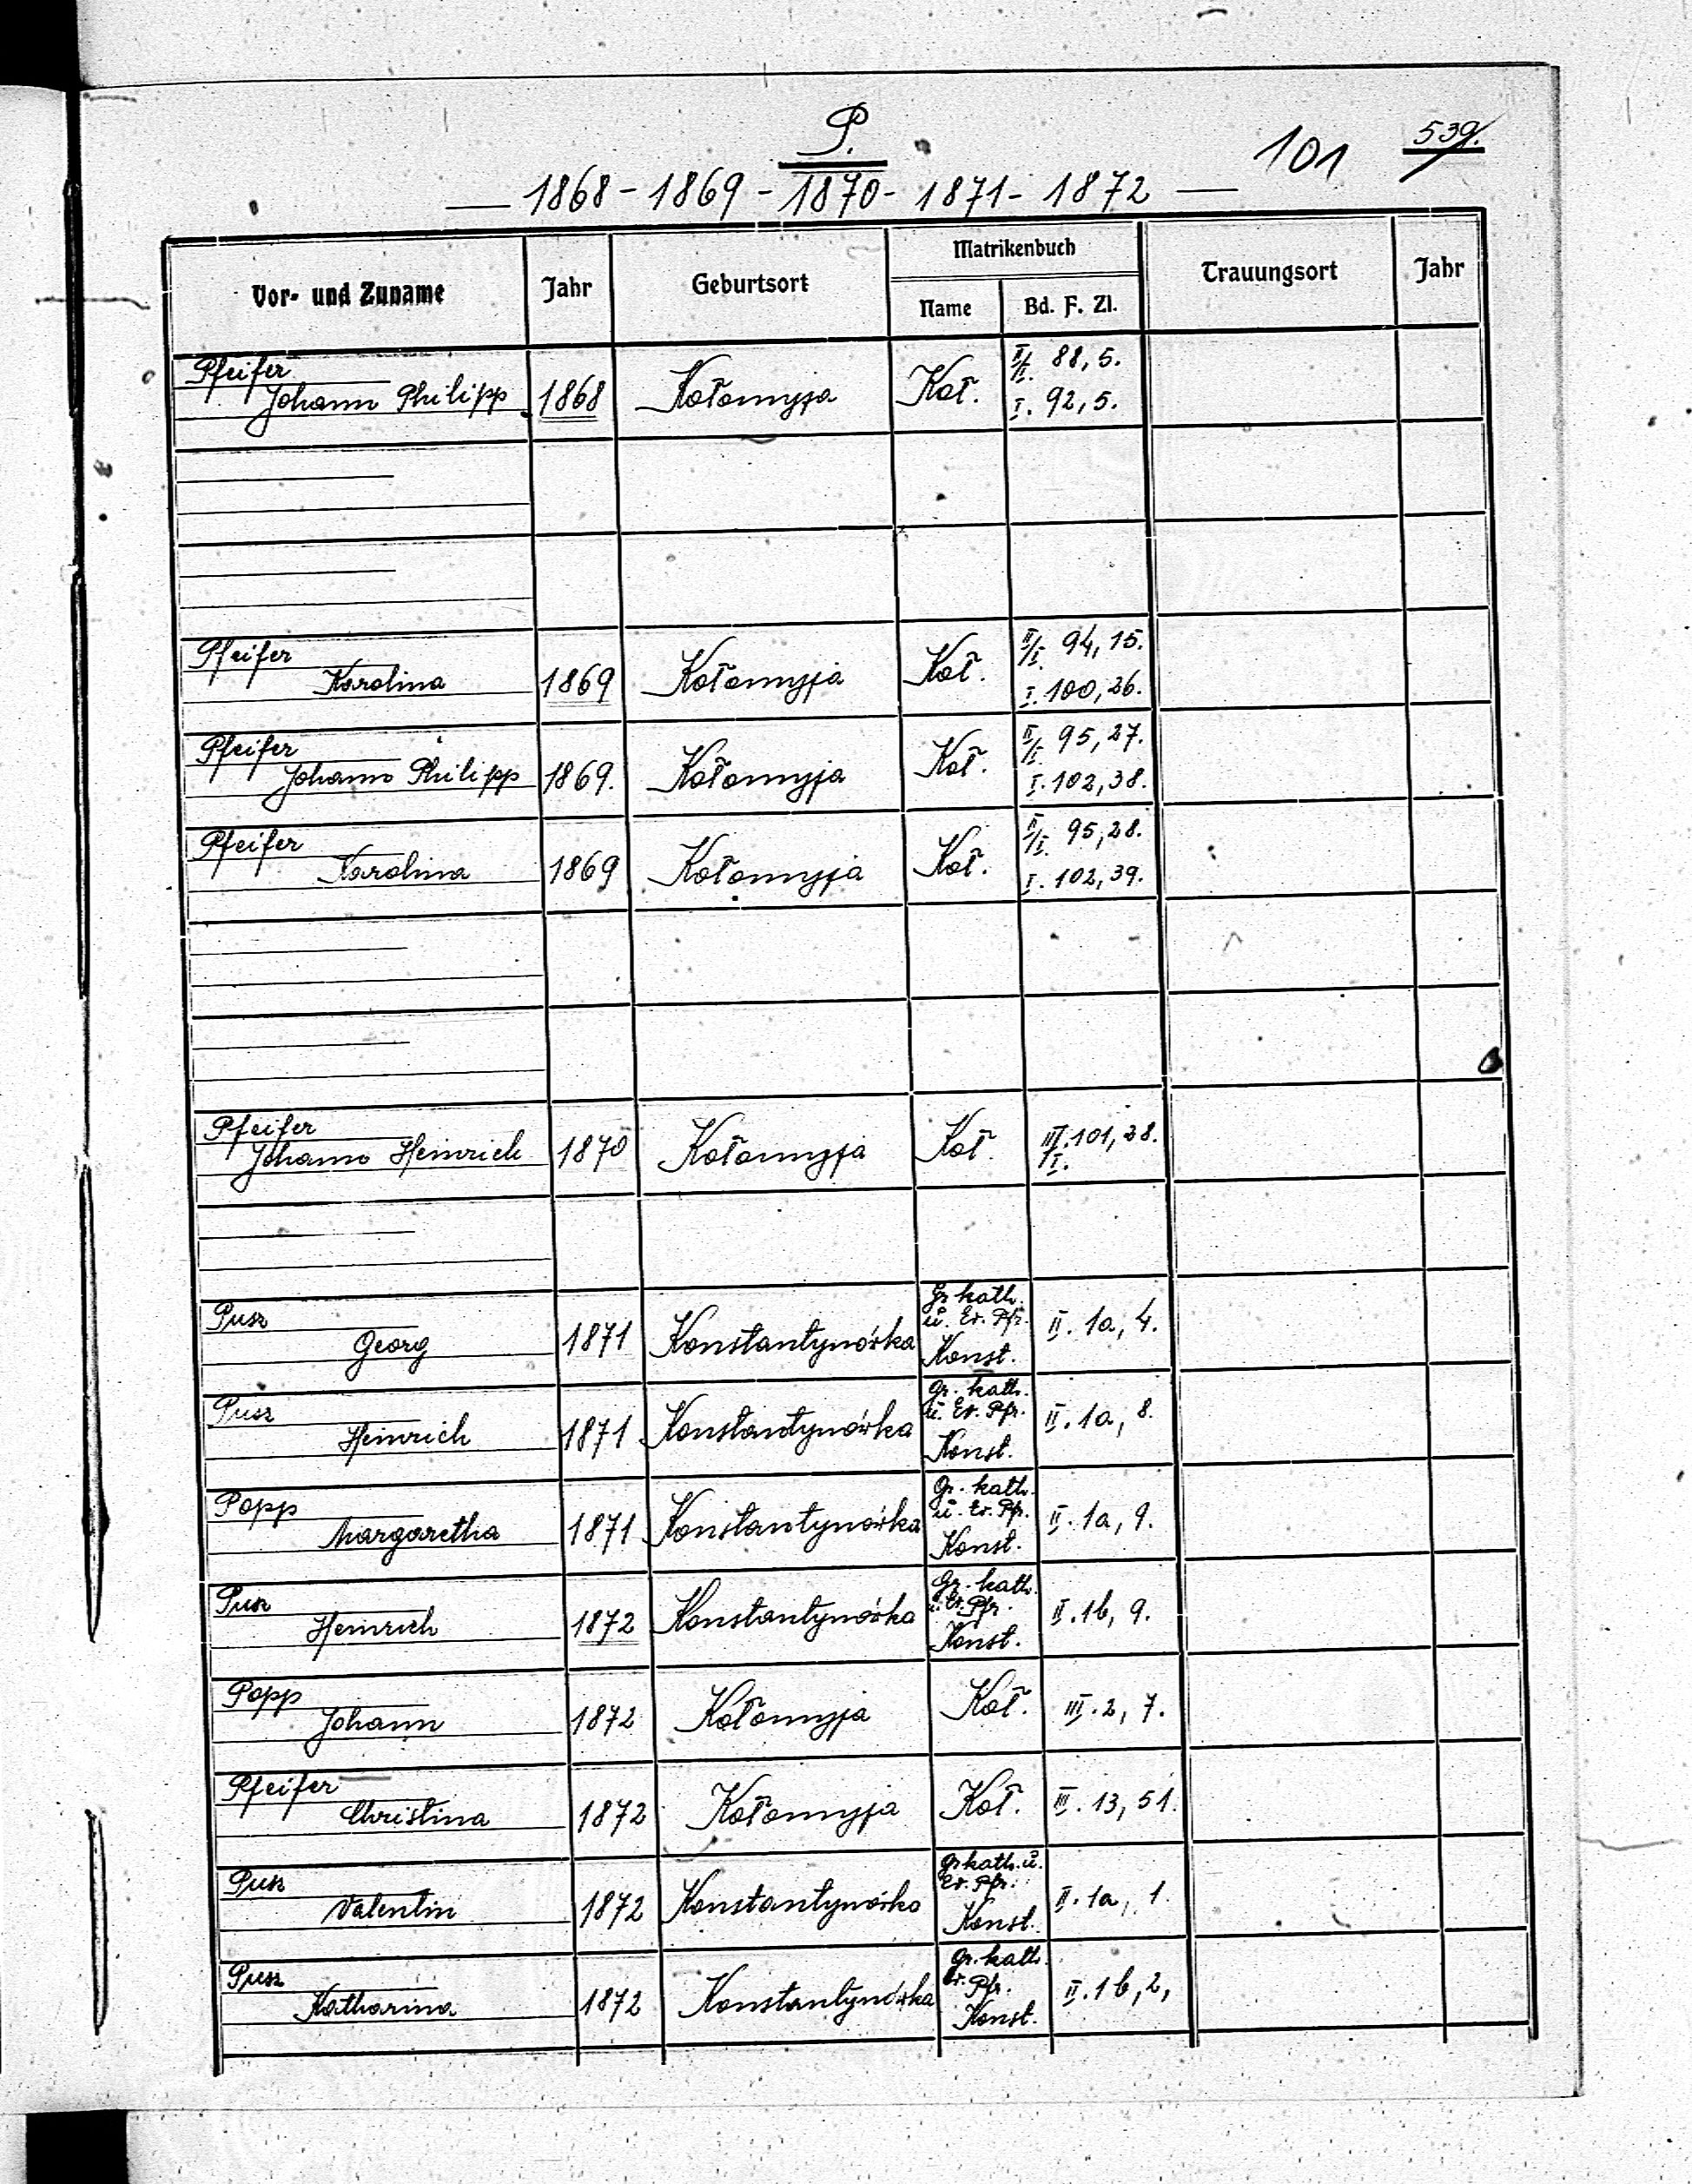 P.
101 539.
— 1868 - 1869 - 1870 - 1871 - 1872 —
Vor- und Zuname Jahr Geburtsort Matrikenbuch Trauungsort Jahr
Name Bd. F. Zl.
Pfeifer II/I. 88, 5.
Johann Philipp 1868 Kołomyja Koł. I. 92, 5.
Pfeifer II/I. 94, 15.
Karolina 1869 Kołomyja Koł. I. 100, 26.
Pfeifer II/I. 95, 27.
Johann Philipp 1869. Kołomyja Koł. I. 102, 38.
Pfeifer II/I. 95, 28.
Karolina 1869 Kołomyja Koł. I. 102, 39.
Pfeifer III/I. 101, 28.
Johann Heinrich 1870 Kołomyja Koł.
Pusz Gr. kath.
u. Ev. Pfr.
Georg 1871 Konstantynówka Konst. II. 1a, 4.
Pusz Gr. kath.
u. Ev. Pfr.
Heinrich 1871 Konstantynówka Konst. II. 1a, 8.
Popp Gr. kath.
u. Ev. Pfr.
Margaretha 1871 Konstantynówka Konst. II. 1a, 9.
Pusz Gr. kath.
u. Ev. Pfr.
Heinrich 1872 Konstantynówka Konst. II. 1b, 9.
Popp
Johann 1872 Kołomyja Koł. III. 2, 7.
Pfeifer
Christina 1872 Kołomyja Koł. III. 13, 51.
Pusz Gr kath. u.
Ev. Pfr.
Valentin 1872 Konstantynówka Konst. II. 1a, 1.
Pusz Gr. kath.
Ev. Pfr.
Katharina 1872 Konstantynówka Konst. II. 1b, 2,